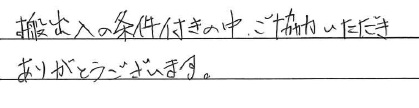 搬出入の条件付きの中、ご協力いただき
ありがとうございます。